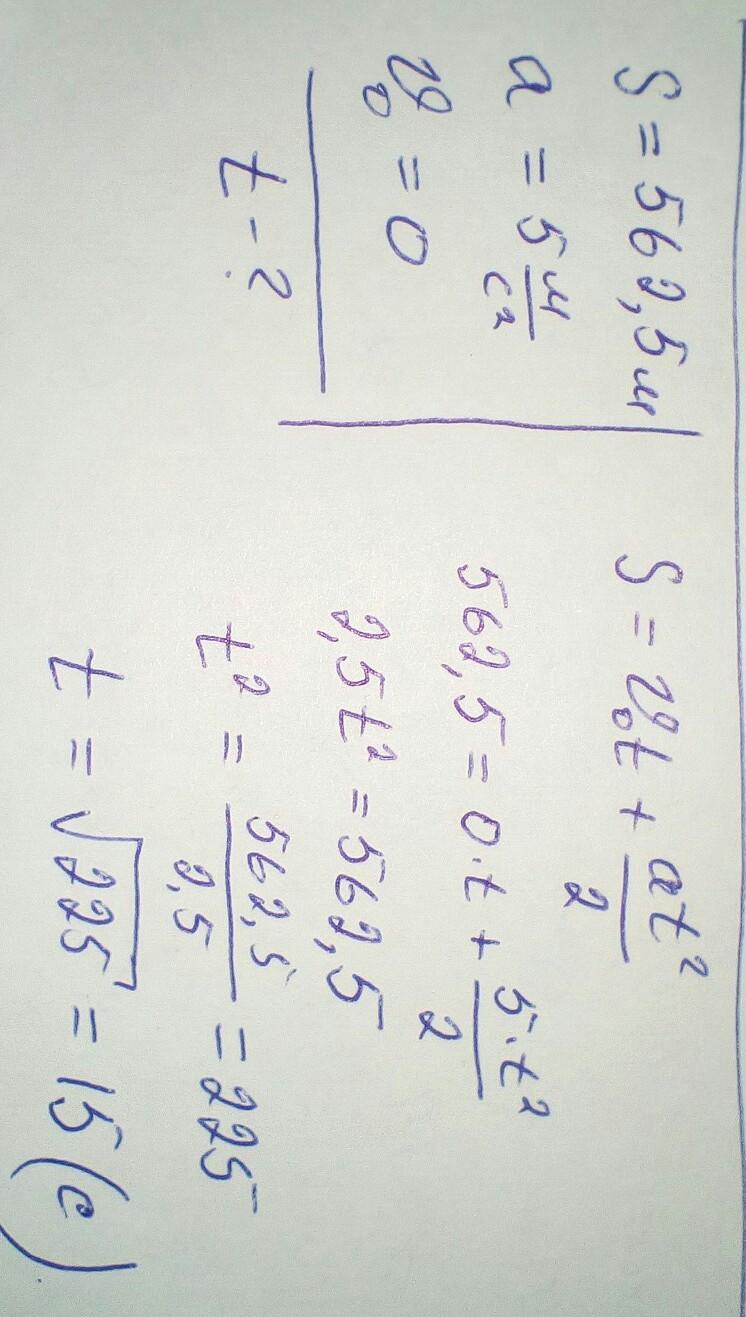 S = 562,5 м
a = 5 м/с²
v₀ = 0
t - ?
S = v₀t + at²/2
562,5 = 0·t + 5·t²/2
2,5t² = 562,5
t² = 562,5/2,5 = 225
t = √225 = 15 (с)